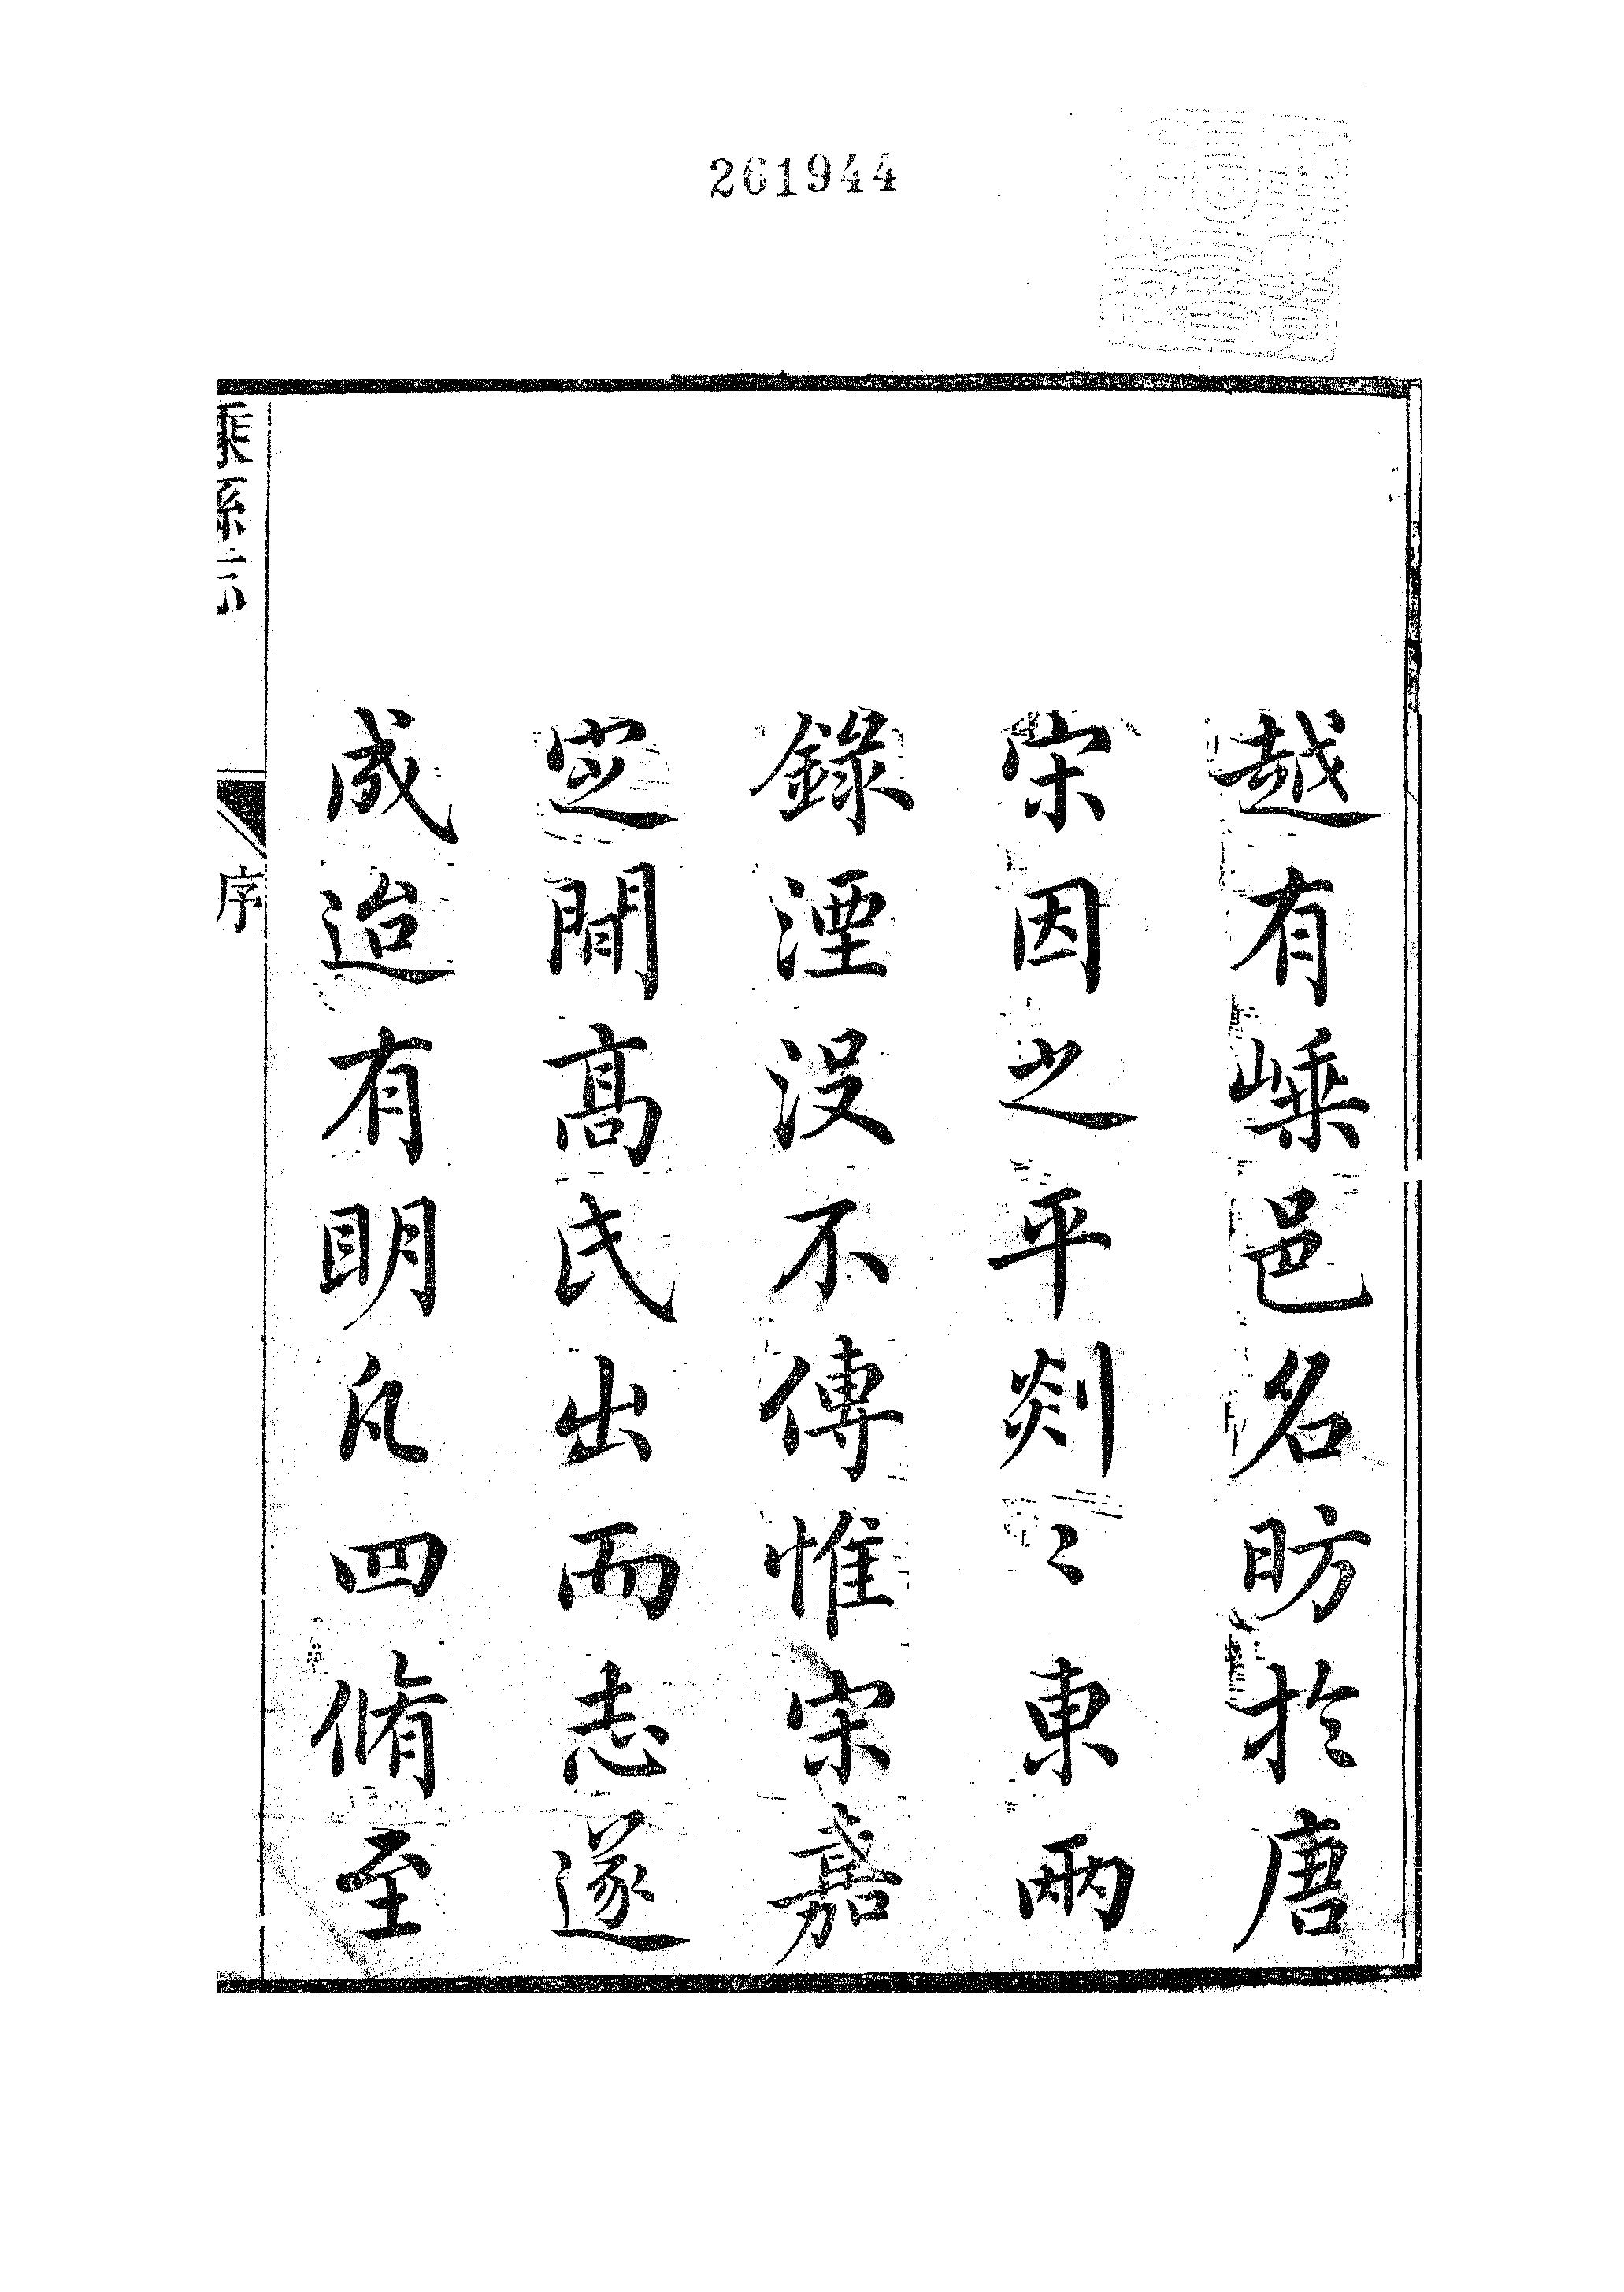 261944
越有嵊邑名昉於唐
宋因之平剡〻東兩
錄湮沒不傳惟宋嘉
定間高氏出而志遂
成迨有明凡四脩至
序